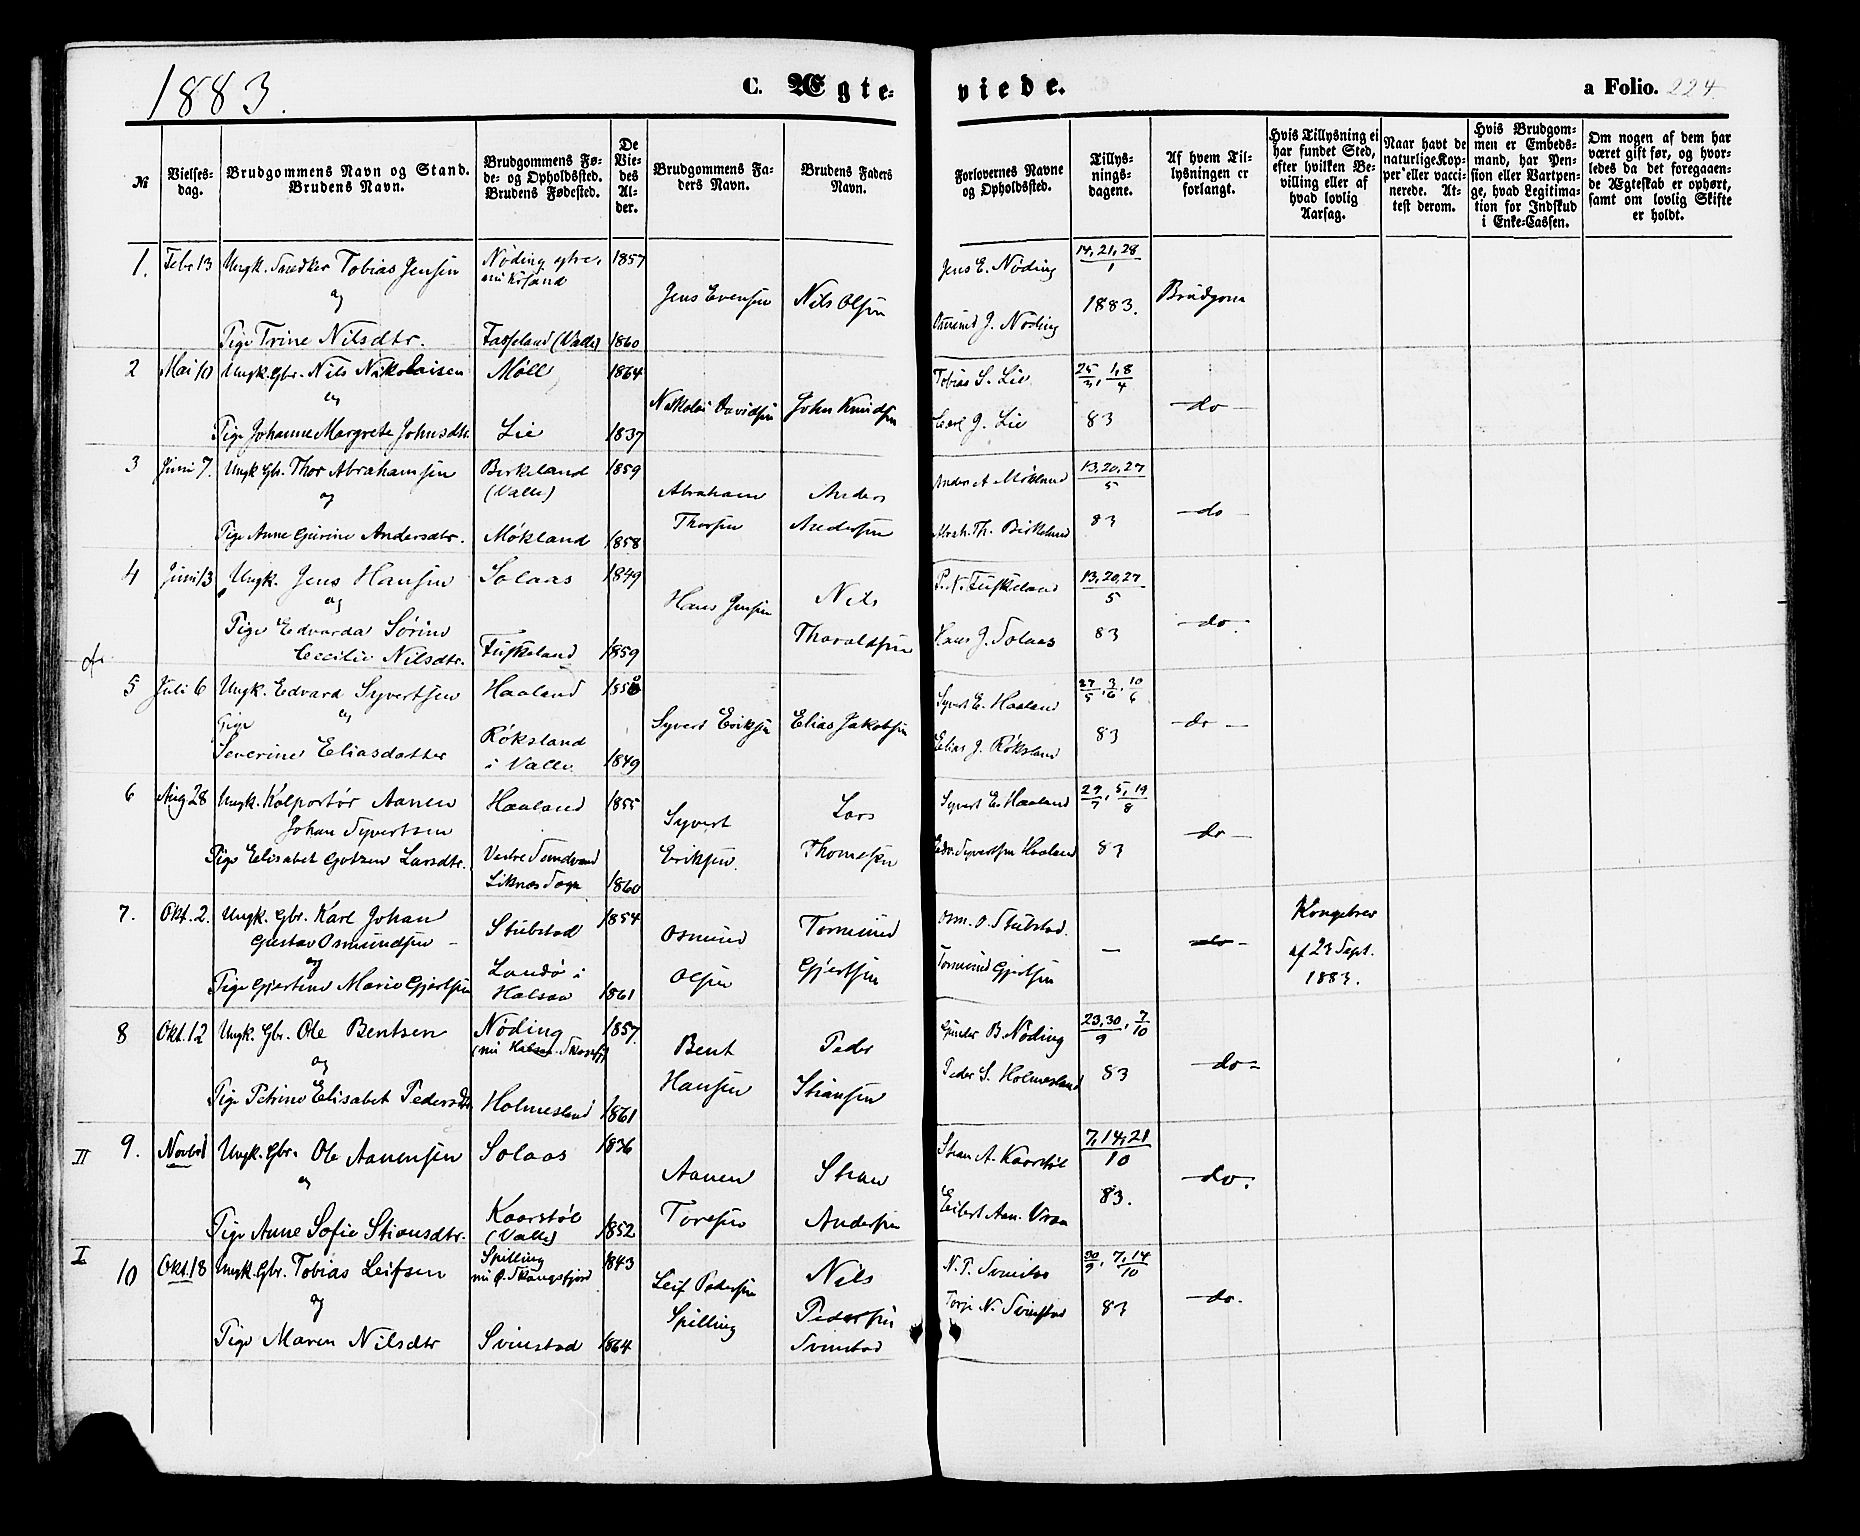 1883.
C. Ægte-
viede.
a Folio. 224.
№
Vielses-
dag.
Brudgommens Navn og Stand.
Brudens Navn.
Brudgommens Fø-
de- og Opholdssted.
Brudens Fødested.
De
Vie-
des
Al-
der.
Brudgommens Fa-
ders Navn.
Brudens Faders
Navn.
Forlovernes Navne
og Opholdssted.
Tillys-
nings-
dagene.
Af hvem Til-
lysningen er
forlangt.
Hvis Tillysning ei
har fundet Sted,
efter hvilken Be-
villing eller af
hvad lovlig
Aarsag.
Naar havt de
naturlige Kop-
per eller vacci-
nerede. At-
test derom.
Hvis Brudgom-
men er Embeds-
mand, har Pen-
sion eller Vartpen-
ge, hvad Legitima-
tion for Indskud
i Enke-Cassen.
Om nogen af dem har
været gift før, og hvor-
ledes da det foregaaen-
de Ægteskab er ophørt,
samt om lovlig Skifte
er holdt.
1. Febr 13 Ungk. Snedker Tobias Jensen Nøding 1857
og
Jens Evensen Nils Olsen Jens E. Nøding 14, 21, 28
1
1883. Brudgom
Pige Trine Nilsdtr. Fasseland (Valle) 1860 Osmund J. Nøding
2 Mai 10 Ungk. Gbr. Nils Nikolaisen Møll 1864 Tobias S. Lie 25/3, 1,8/4
og
Nikolai Davidsen John Knudsen Carl J. Lie 83 -do-
Pige Johanne Margrete Johnsdtr. Lie 1837
3 Juni 7. Ungk Gbr. Thor Abrahamsen Birkeland 1859 Anders A Møkland 13,20,27
(Valle) 5
og Abraham Anders
Thorsen Andersen 83 -do-
Pige Anne Gurine Andersdtr. Møkland 1858 Abrah. Th. Birkeland
4 Juni 13 Ungk. Jens Hansen Solaas 1849 P. N. Fuskeland 13,20,27
og 5
Hans Jensen Nils
Pige Edvarda Sørine Thoraldsen Hans J. Solaas 83 -do-
Cecilie Nilsdtr. Fuskeland 1859
5 Juli 6 Ungk. Edvard Syvertsen Haaland Syvert E. Haaland 27/5, 3/6, 10/6
og
Pige Syvert Eriksen Elias Jakobsen 83 -do-
Severine Eliasdatter Røksland
i Valle 1849 Elias J. Røksland
6 Aug 28 Ungk. Kolportør Aanen Haaland 1855 Syvert E. Haaland 29/7, 5, 19/8
Johan Syvertsen Syvert Lars -do-
Pige Elisabet Gotzen Larsdtr. Vestre Eriksen. Thomesen Edv. Syvertsen Haaland 83
Liknes Sogn 1860
7. Okt. 2. Ungk. Gbr. Karl Johan Stubstad 1854 Osm. O. Stubstad. Kongebrev
Gustav Osmundsen - Osmund Tormund — -do- af 23 Sept.
og Landø i Olsen Gjertsen Tormund Gjertsen 1883.
Pige Gjertine Marie Gjertsen Halsaa 1861
8 Okt. 12 Ungk. Gbr. Ole Bentsen Nøding 1857. Gunder B. Nøding 23,30/9, 7/10
og Bent Peder
Hansen Stiansen Peder S. Holmesland 83 -do-
Pige Petrine Elisabet Pedersdtr. Holmesland 1861
II 9. Novbr 1 Ungk. Gbr. Ole Aanensen Solaas 1836 Stian A. Kaarstøl 7, 14, 21
og 10
Aanen Stian -do.
Toresen Andersen 83.
Pige Anne Sofie Stiansdtr. Kaarstøl
(Valle) 1852
I 10 Okt. 18 Ungk. Gbr. Tobias Leifsen Spilling 1843 N. P. Svinstad 30/9, 7, 14/10
og Leif Pedersen Nils
Spilling Pedersen Torje N. Svinstad 83 -do.
Pige Maren Nilsdtr Svinstad 1864 Svinstad